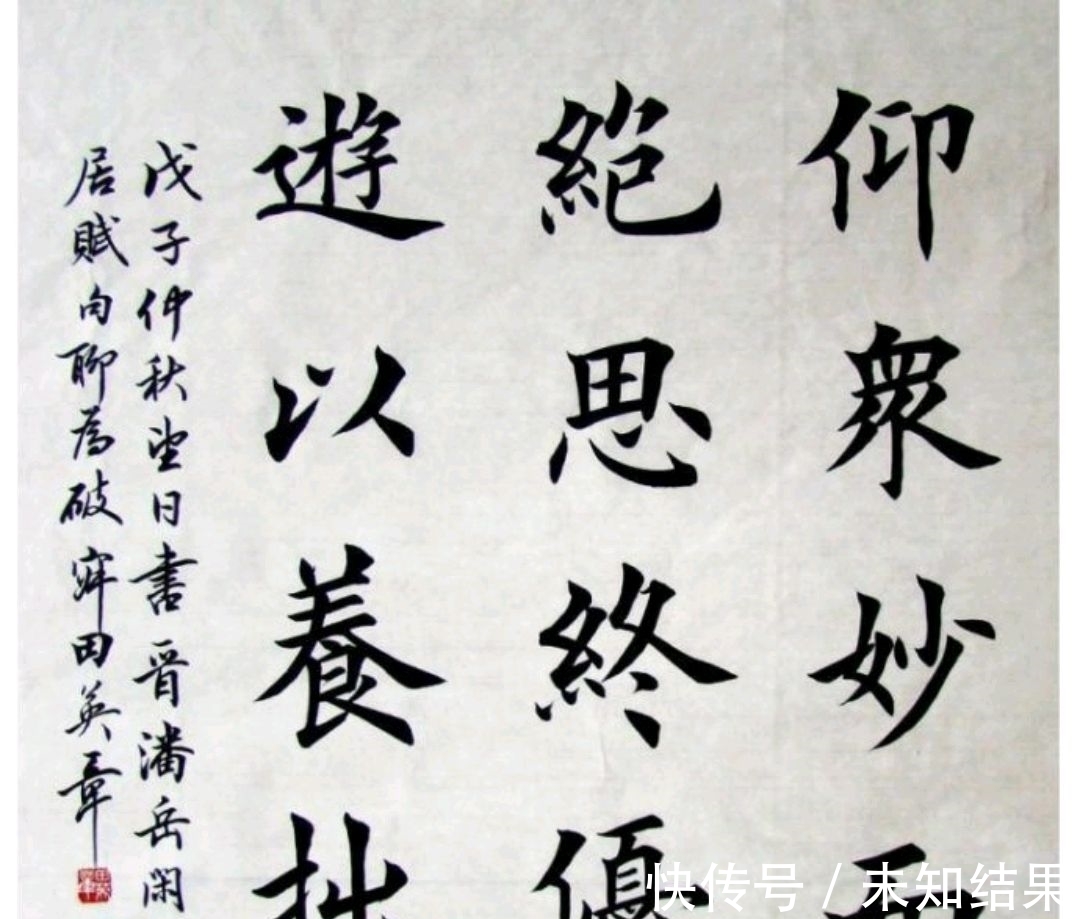 仰衆妙
絶思終優
遊以養拙
戊子仲秋望日書晉潘岳閑
居賦句聊為破田英章
快传号 / 未知结果